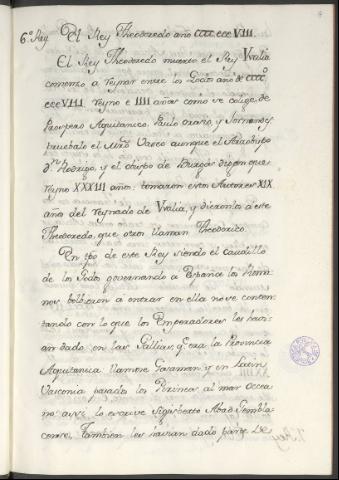 6.º Rey El Rey Theodoredo año CCCC.CCCVIII.
El Rey Theodoredo muerto el Rey Vvalia
comenzo a reynar entre los Godos año de CCCCº
CCCVIII. reyno e IIII años como se colige de
Prospero Aquitanico, Paulo Orosio, y Jornandes
pruebalo el Mro Vaseo aunque el Arzobispo
Dn. Rodrigo, y el obispo de Burgos digan que
reyno XXXIII años. tomaron estos Autores XIX
años del reynado de Vvalia, y dieronlos a este
Theodoredo, que otros llaman Theodorico.
En tpo de este Rey siendo el caudillo
de los Godos governando a España los Roma-
nos bolbieron a entrar en ella no se conten-
tando con lo que los Emperadores les havi-
an dado en las Gallias, q.e era la Provincia
Aquitanica llamose Gascuna y en Latin
Vasconia pasados los Pirineos al mar Occea-
no assi lo escrive Sigisberto Abad Gembla-
cense. Tambien les havian dado parte de